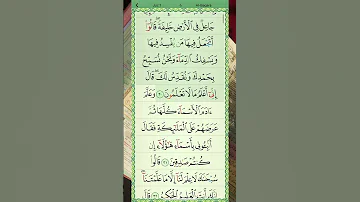 جَاعِلٌ فِى ٱلْأَرْضِ خَلِيفَةً ۖ قَالُوٓا۟
أَتَجْعَلُ فِيهَا مَن يُفْسِدُ فِيهَا
وَيَسْفِكُ ٱلدِّمَآءَ وَنَحْنُ نُسَبِّحُ
بِحَمْدِكَ وَنُقَدِّسُ لَكَ ۖ قَالَ
إِنِّىٓ أَعْلَمُ مَا لَا تَعْلَمُونَ ٣٠ وَعَلَّمَ
ءَادَمَ ٱلْأَسْمَآءَ كُلَّهَا ثُمَّ
عَرَضَهُمْ عَلَى ٱلْمَلَٰٓئِكَةِ فَقَالَ
أَنۢبِـُٔونِى بِأَسْمَآءِ هَٰٓؤُلَآءِ إِن
كُنتُمْ صَٰدِقِينَ ٣١ قَالُوا۟
سُبْحَٰنَكَ لَا عِلْمَ لَنَآ إِلَّا مَا عَلَّمْتَنَآ ۖ
إِنَّكَ أَنتَ ٱلْعَلِيمُ ٱلْحَكِيمُ ٣٢ قَالَ